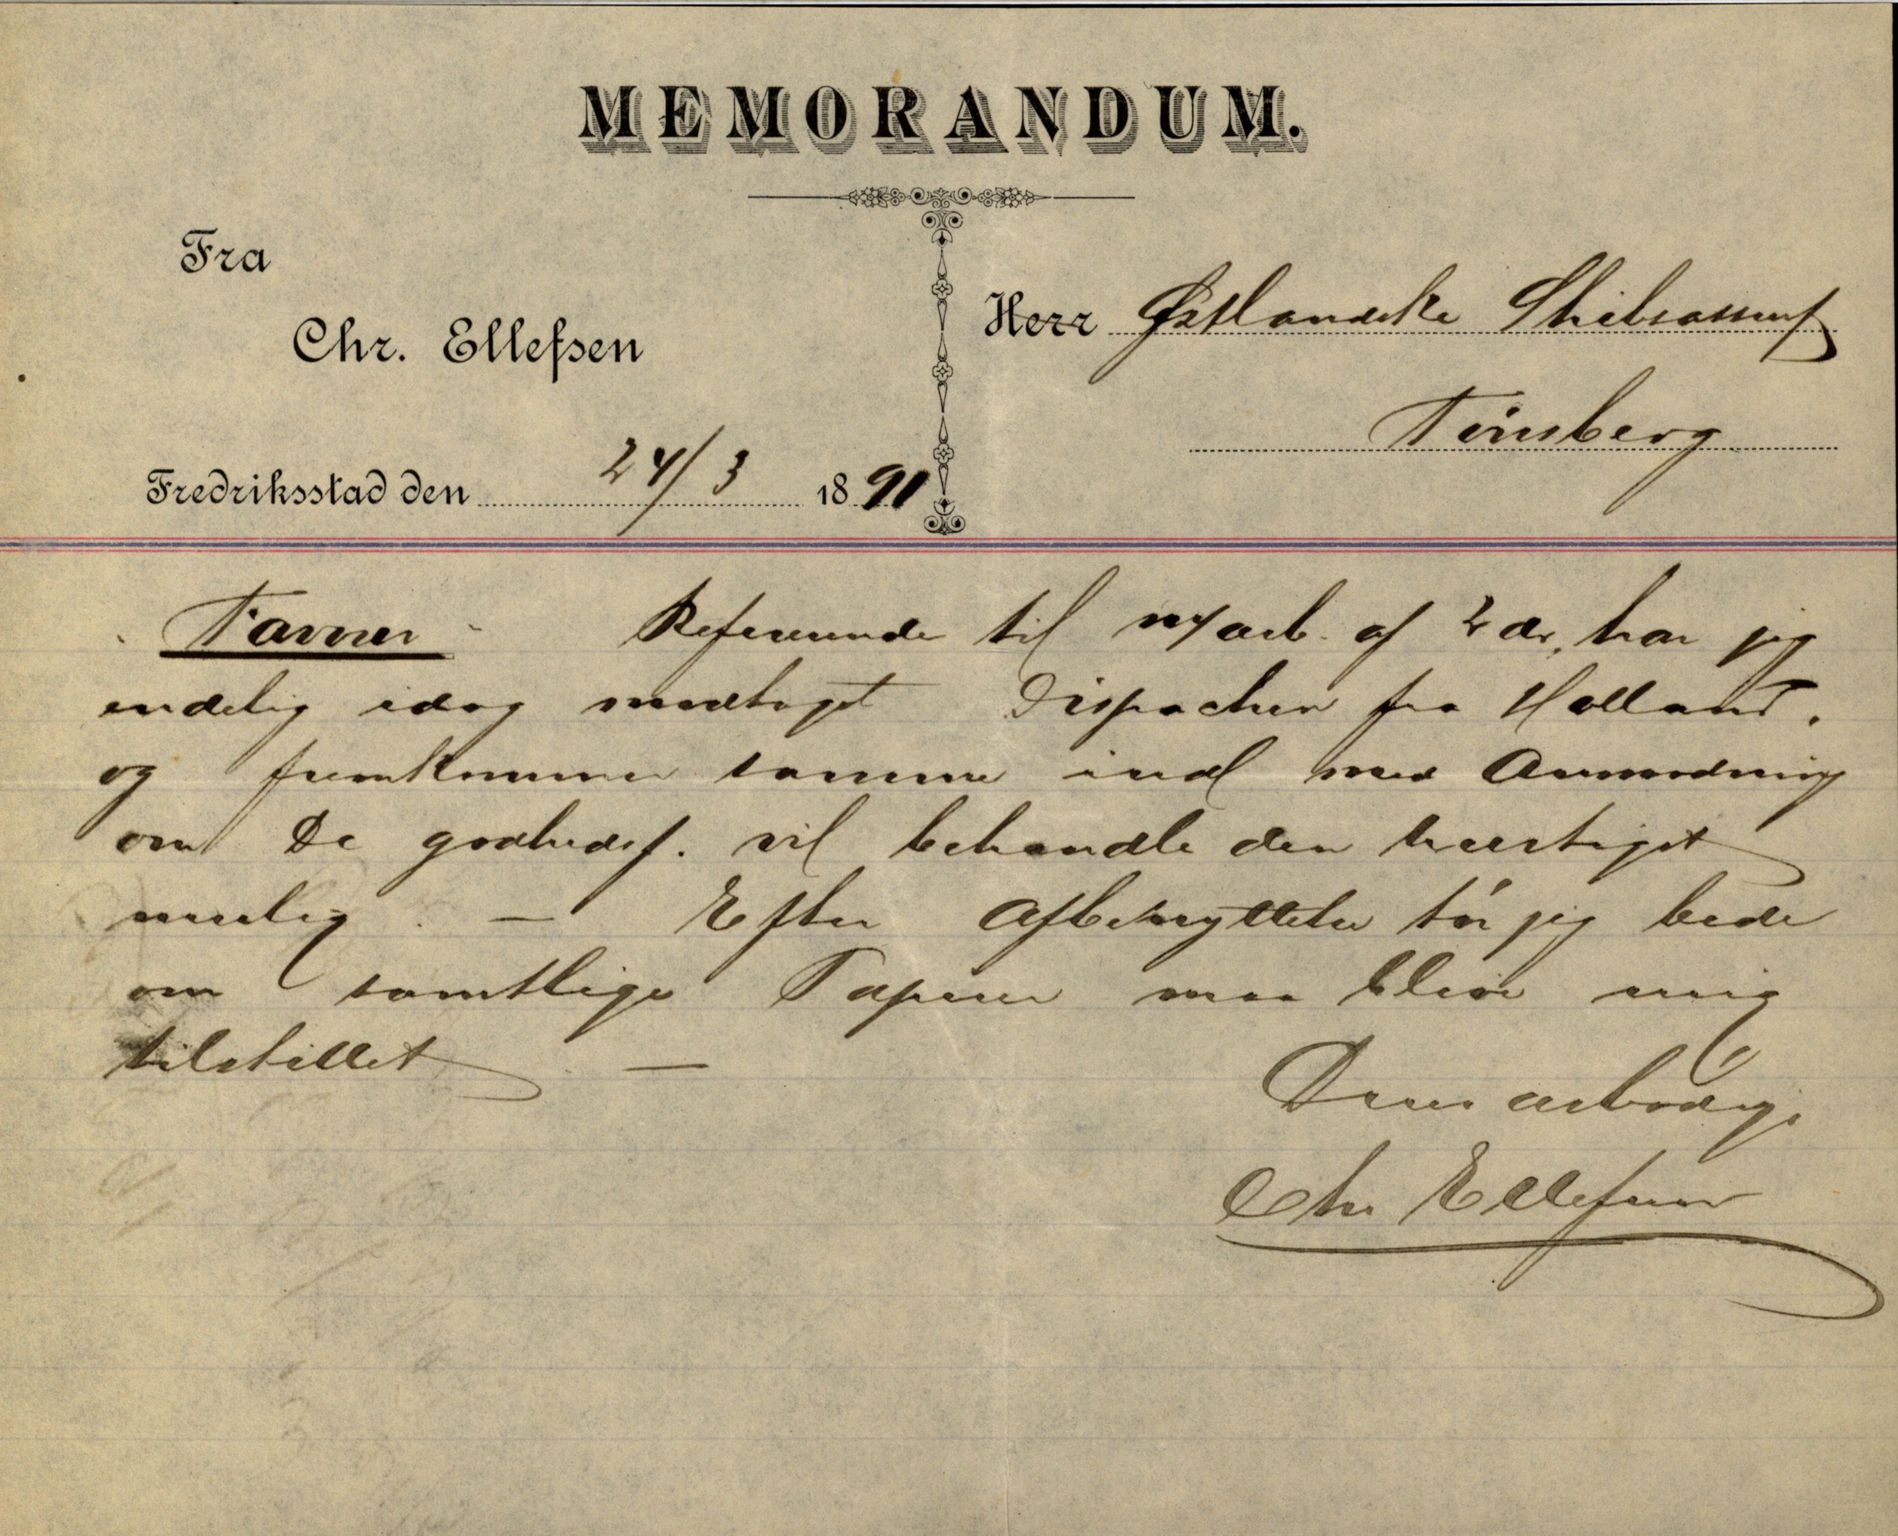 MEMORANDUM.
Fra
Chr. Ellefsen
Herr Østlandske Skibsassurf
Tönsberg
Fredriksstad den 24/3 1891
Favner Refererende til m/ærb. af 2 ds, har jeg
endelig idag modtaget Dispachen fra Holland,
og fremkommer samme indl med Anmodning
om De godhedsf. vil behandle den hurtigst
mulig. — Efter Afbenyttelse tör jeg bede
om samtlige Papirer maa blive mig
tilstillet —
Deres ærbödig.
Chr Ellefsen